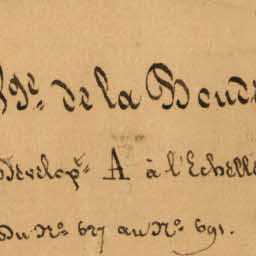 Don de la Boud
Develop.t A à l'Echelle
Du N.o 627 au N.o 691.